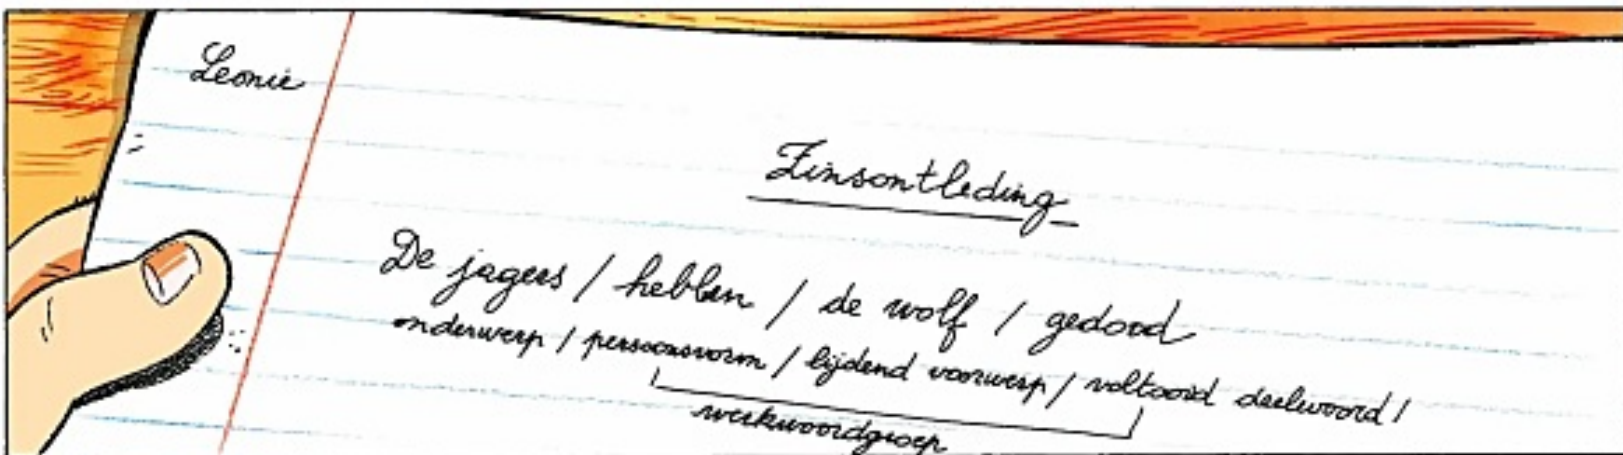 Leonie
Zinsontleding
De jagers / hebben / de wolf / gedood
onderwerp / persoonsvorm / lijdend voorwerp / voltooid deelwoord /
werkwoordgroep